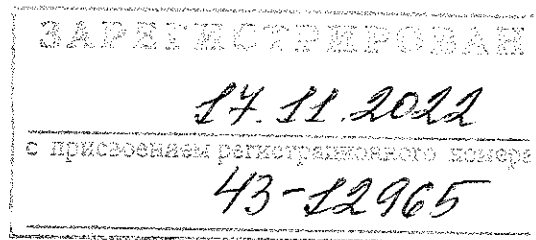 ЗАРЕГИСТРИРОВАН
17.11.2022
с присвоением регистрационного номера
43-12965